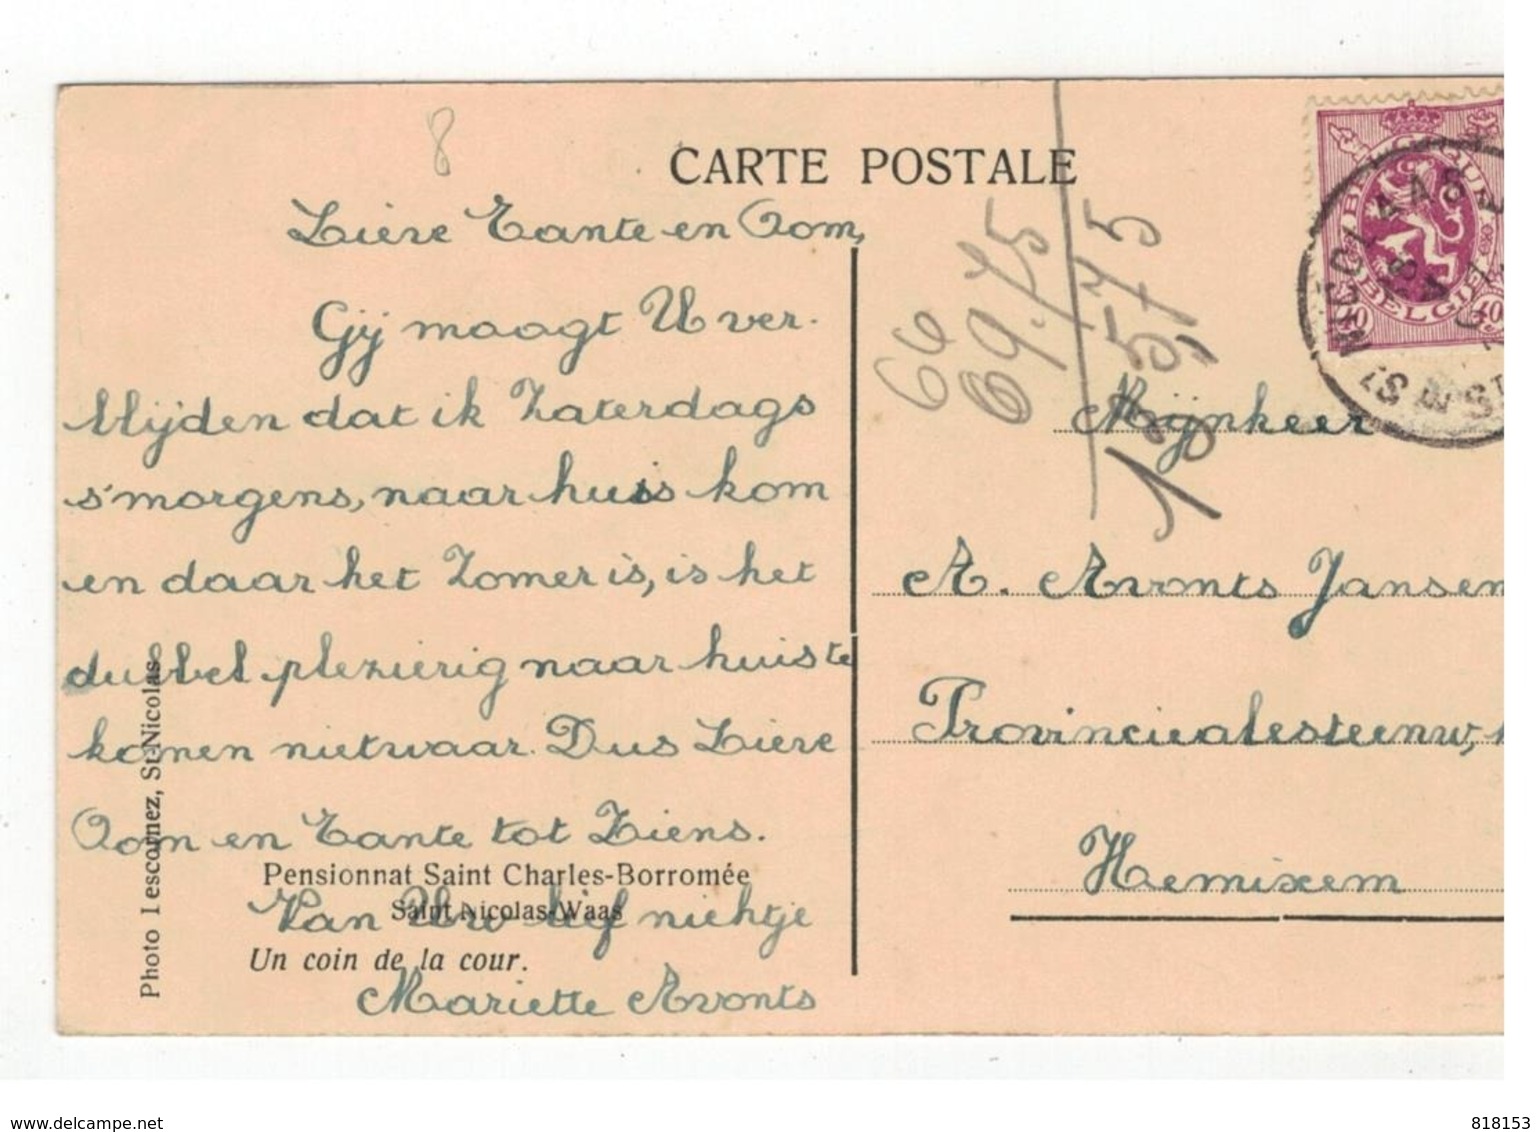 8
CARTE POSTALE
Lieve Tante en Oom,
Gij moogt U ver-
blijden dat ik Zaterdags
s'morgens, naar huis kom
en daar het Zomer is, is het
dubbel plezierig naar huis te
komen nietwaar. Dus Lieve
Oom en Tante tot Ziens.
Pensionnat Saint Charles-Borromée
Van Uw lief nichtje
Saint Nicolas-Waas
Un coin de la cour.
Mariette Avonts
Photo Lescornez, St-Nicolas
66
69.75
5,75
Mijnheer
A. Avonts Jansen
Provincialesteenw,
Hemixem
BELGIQUE
BELGIË
40 40
delcampe.net
818153